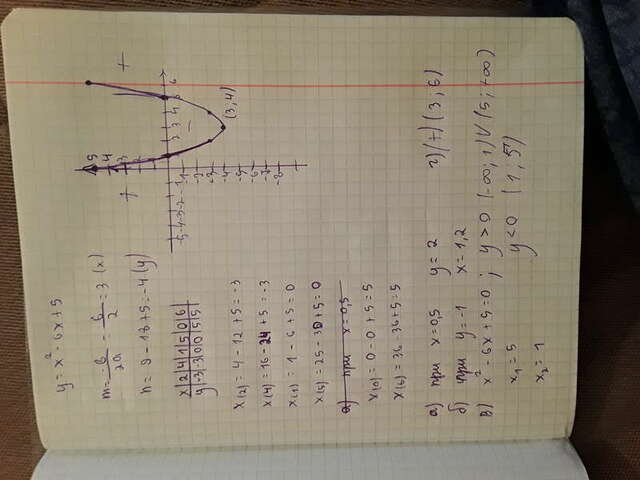 y = x² - 6x + 5
m = -b/2a = 6/2 = 3 (x)
n = 9 - 18 + 5 = -4 (y)
x | 2 | 4 | 1 | 5 | 0 | 6 |
y | -3 | -3 | 0 | 0 | 5 | 5 |
x(2) = 4 - 12 + 5 = -3
x(4) = 16 - 24 + 5 = -3
x(1) = 1 - 6 + 5 = 0
x(5) = 25 - 30 + 5 = 0
а) при x = 0,5
x(0) = 0 - 0 + 5 = 5
x(6) = 36 - 36 + 5 = 5
а) при x = 0,5 y = 2
б) при y = -1 x = 1,2
в) x² - 6x + 5 = 0 ; y > 0 (-∞; 1) V (5; +∞)
x₁ = 5 y < 0 (1; 5)
x₂ = 1
+
+
-
(3, 4)